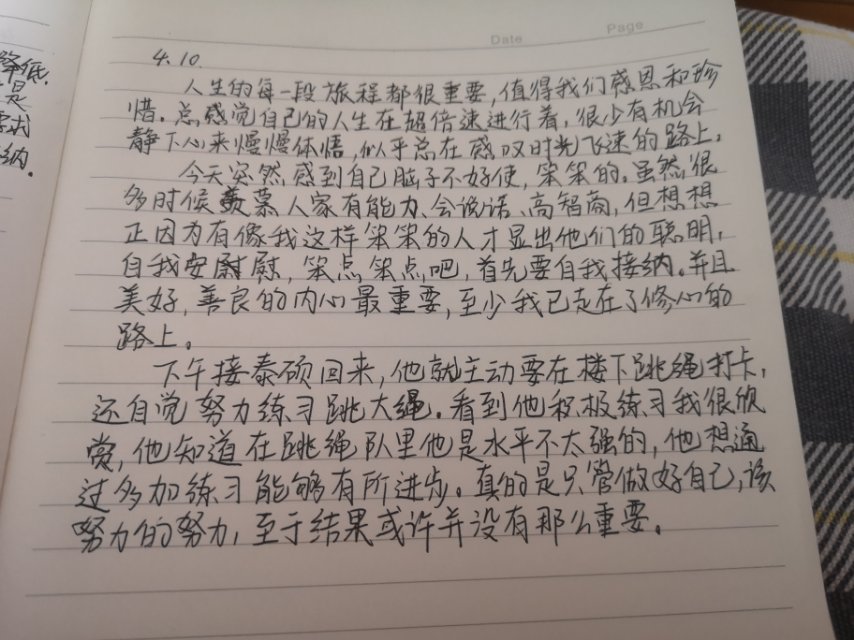 Date Page
降低.
是
纳.
4.10.
人生的每一段旅程都很重要,值得我们感恩和珍
惜.总感觉自己的人生在超倍速进行着,很少有机会
静下心来慢慢体悟,似乎总在感叹时光飞速的路上.
今天突然感到自己脑子不好使,笨笨的.虽然很
多时候羡慕人家有能力、会说话、高智商,但想想
正因为有像我这样笨笨的人才显出他们的聪明,
自我安慰慰,笨点笨点吧,首先要自我接纳.并且
美好,善良的内心最重要,至少我已走在了修心的
路上。
下午接泰硕回来,他就主动要在楼下跳绳打卡,
还自觉努力练习跳大绳.看到他积极练习我很欣
赏,他知道在跳绳队里他是水平不太强的,他想通
过多加练习能够有所进步。真的是只管做好自己,该
努力的努力,至于结果或许并没有那么重要。